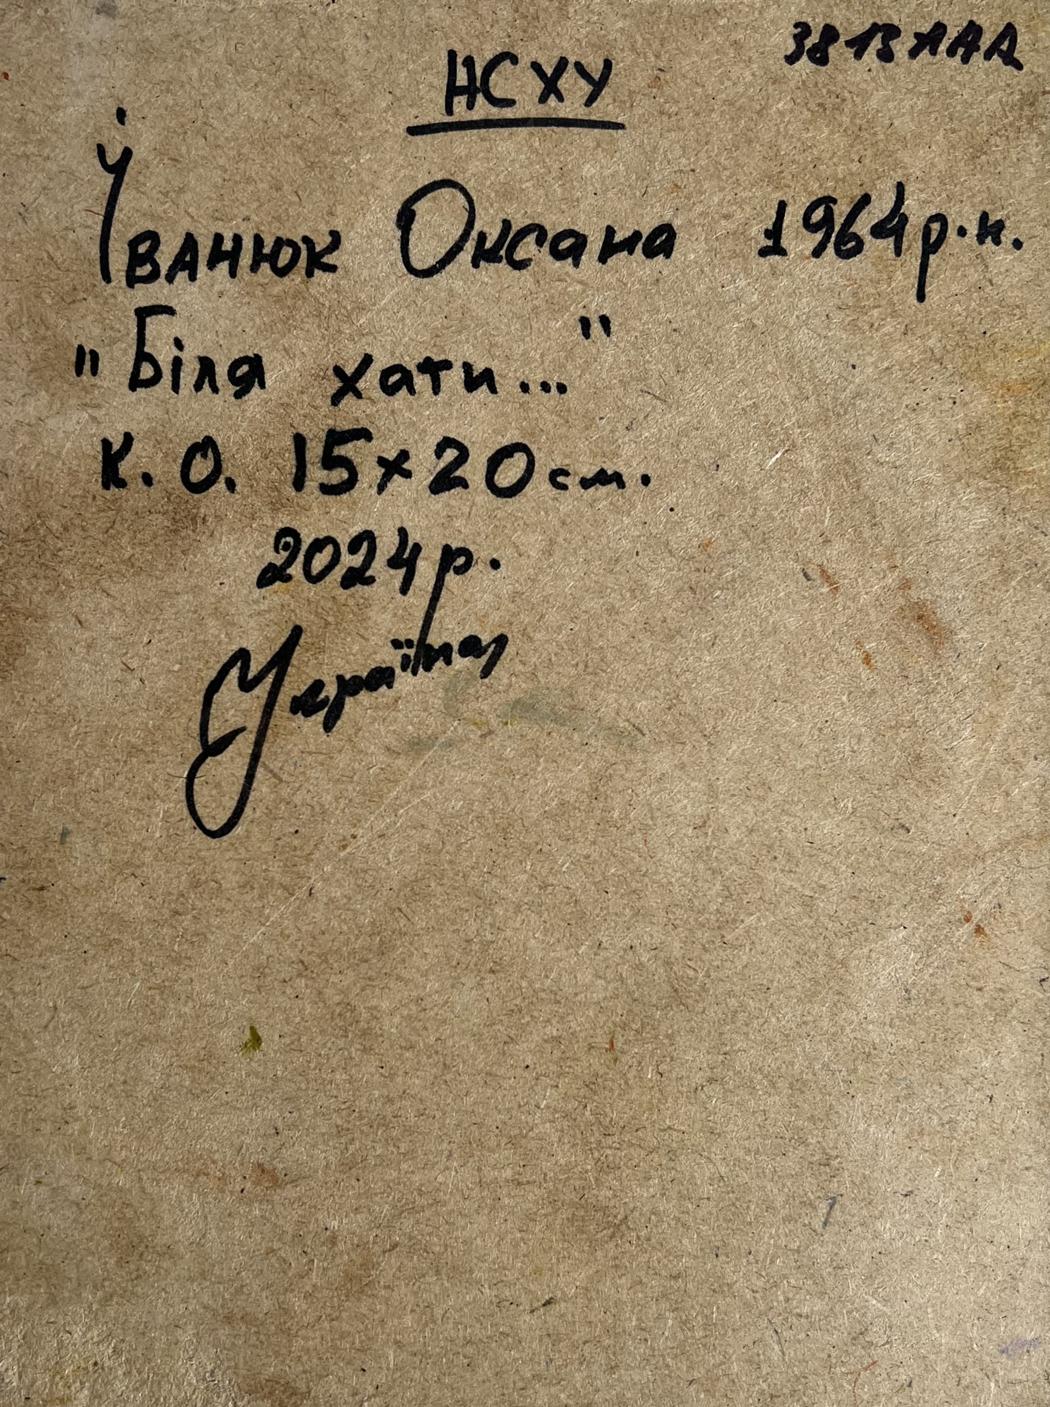 3813ААА
НСХУ
Іванюк Оксана 1964р.н.
"Біля хати..."
К.О. 15х20см.
2024р.
Україна